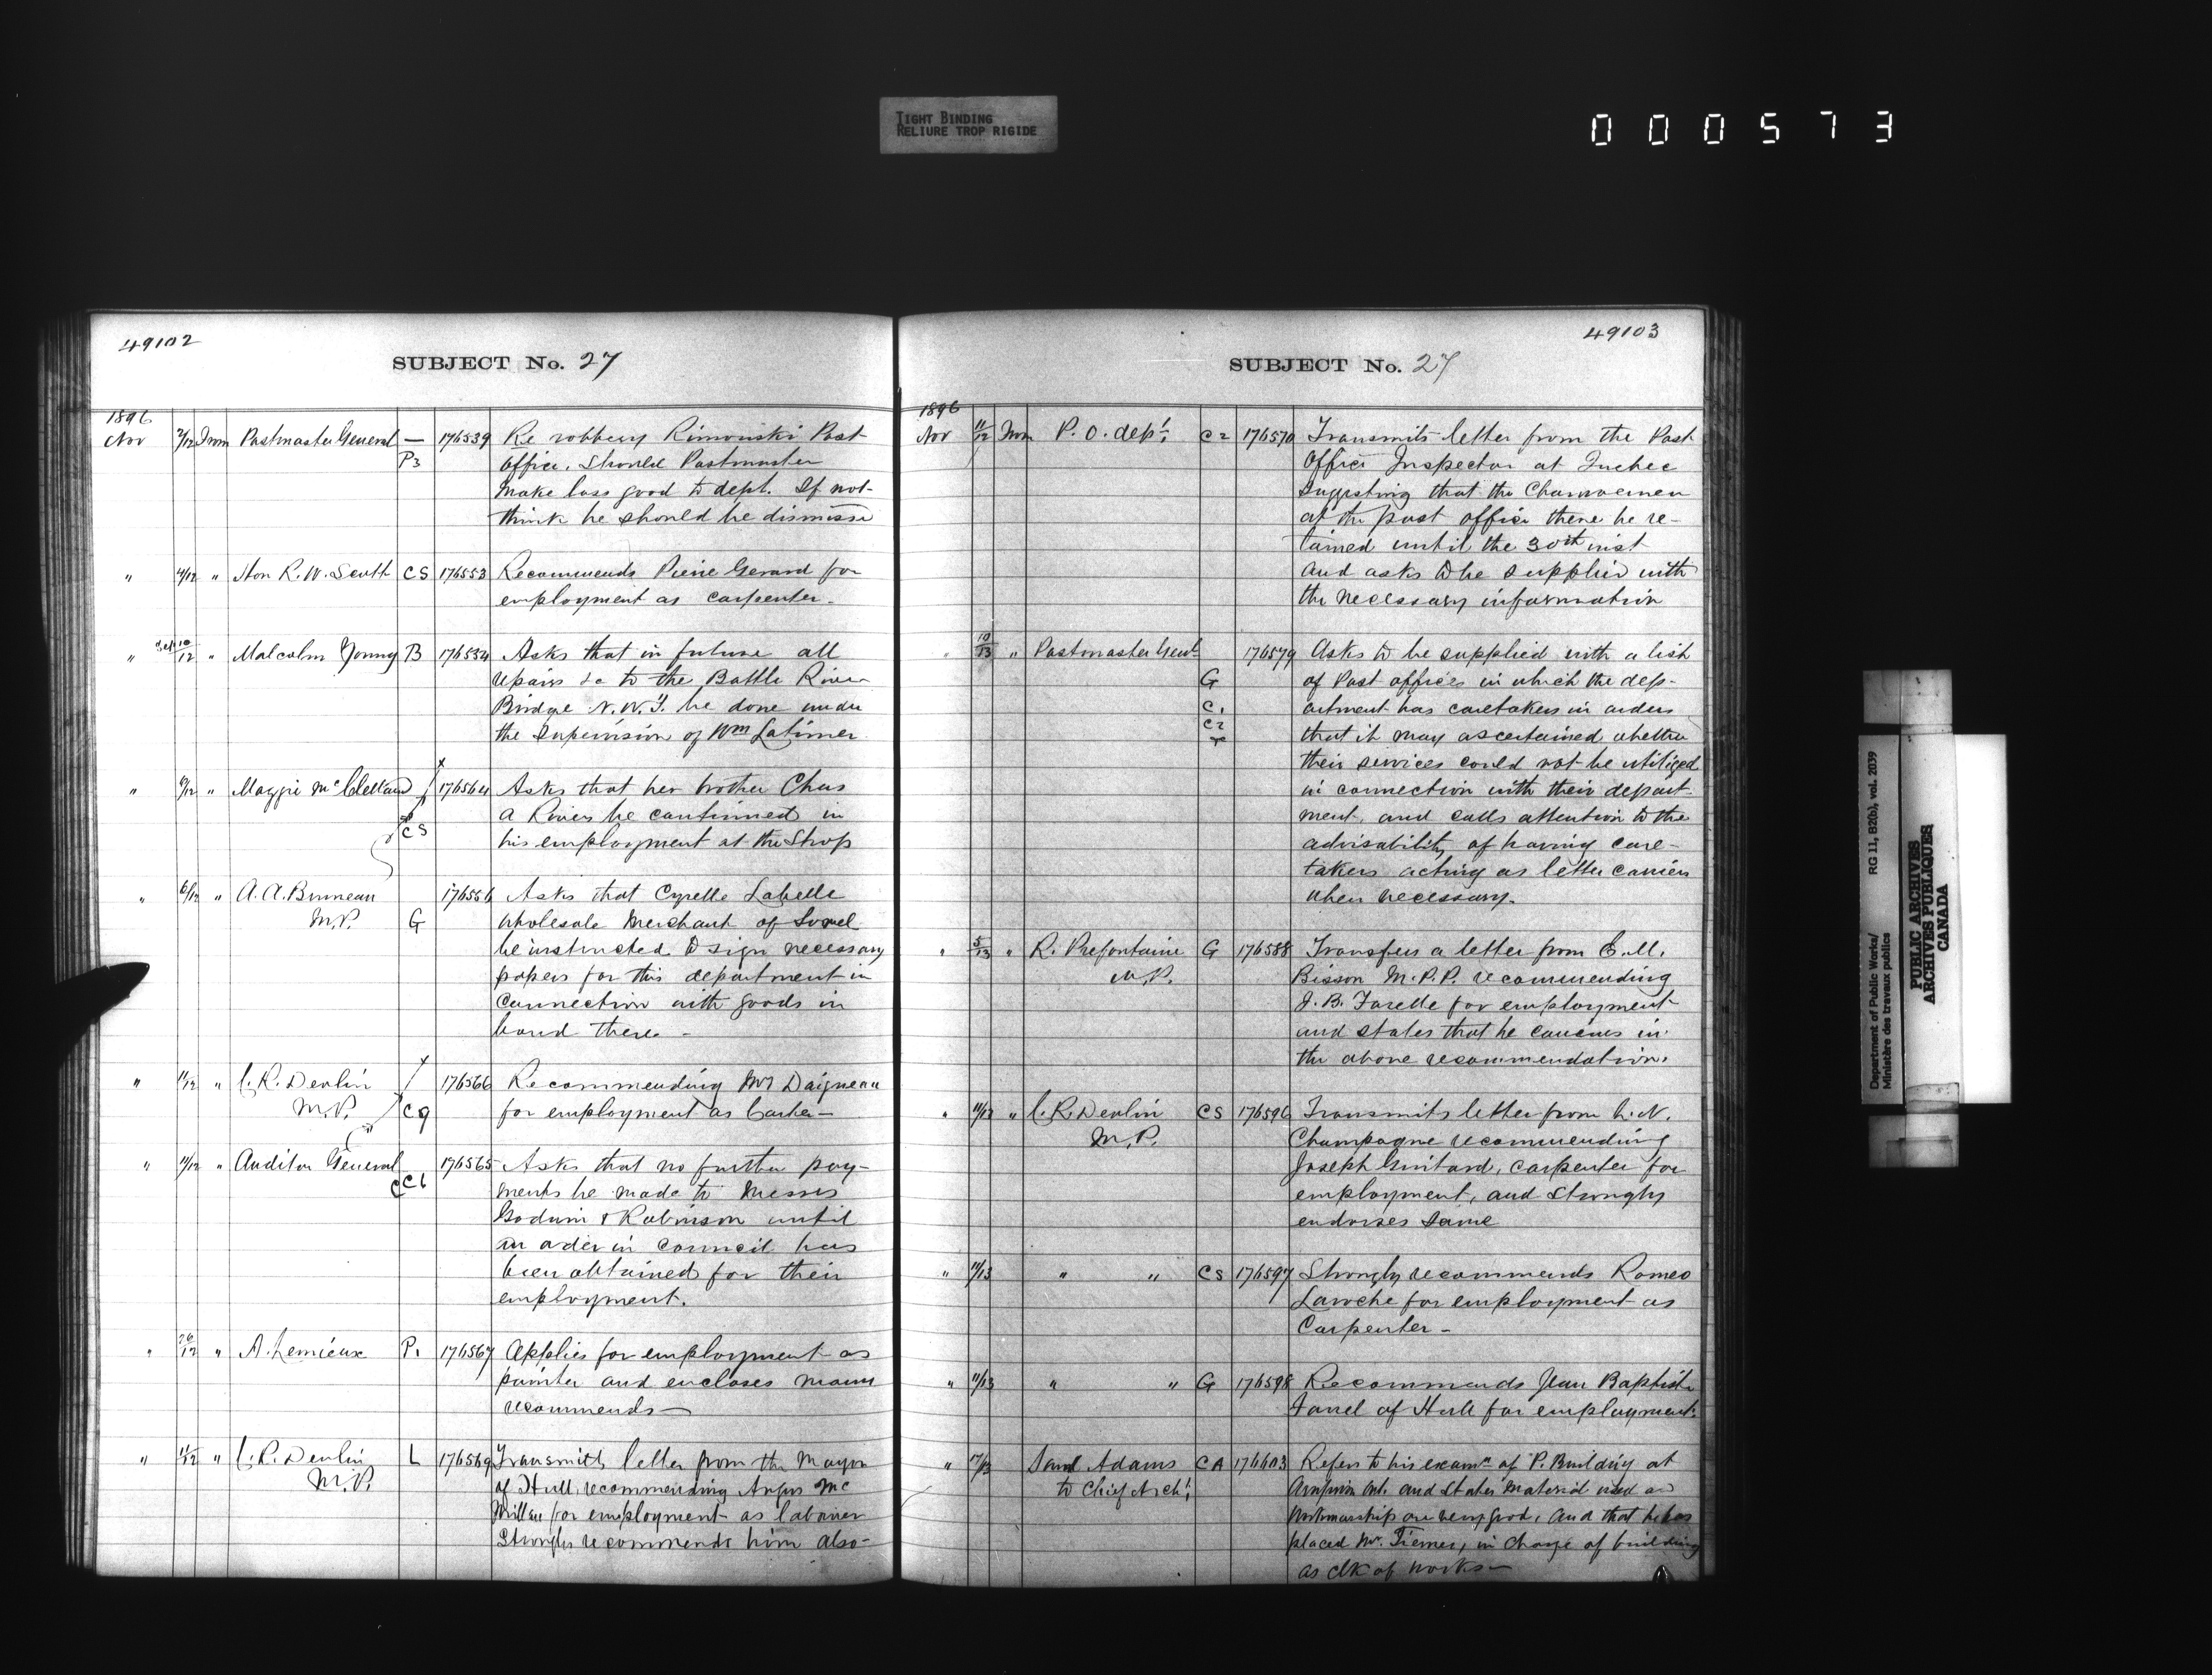 TIGHT BINDING
RELIURE TROP RIGIDE
000573
49102
SUBJECT No. 27
1896
Nov 2/12 From Postmaster General — 176539 Re robbery Rimouski Post
P3 Office. Should Postmaster
make loss good to dept. If not
think he should be dismissd
" 4/12 " Hon R. W. Scott CS 176553 Recommends Pierre Gerard for
employment as carpenter-
" Sep 10/12 " Malcolm Young B 176534 Asks that in future all
repairs &c to the Battle River
Bridge N.W.T. be done under
the supervision of Wm Latimer
" 9/12 " Maggie McClelland 176564 Asks that her brother Chas
a River be continued in
CS his employment at the Shop
" 6/12 " A. A. Bruneau 176556 Asks that Cyrelle Labelle
M.P. G wholesale Merchant of Sorel
be instructed to sign necessary
papers for this department in
connection with goods in
bond there -
" 11/12 " C. R. Devlin 176566 Recommending Mr Daigneau
M.P. C9 for employment as Carter-
" 11/12 " Auditor General 176565 Asks that no further pay-
C C6 ments be made to Messrs
Godwin & Robinson until
an order in council has
been obtained for their
employment.
" 26/12 " A. Lemieux P1 176567 Applies for employment as
painter and encloses
recommends —
" 11/12 " C. R. Devlin L 176569 Transmits letter from the Mayor
M.P. of Hull, recommending Angus Mc
Millan for employment as labourer
Strongly recommends him also-
49103
SUBJECT No. 27
1896
Nov 11/12 From P. O. dept. C2 176570 Transmits letter from the Post
Office Inspector at Quebec
suggesting that the Charwomen
at the post office there be re-
tained until the 30th inst
and asks to be supplied with
the necessary information
" 10/13 " Postmaster Genl 176579 Asks to be supplied with a list
G of Post offices in which the dep-
C1 artment has caretakers in orders
C2 that it may ascertained whether
their services could not be utilized
in connection with their depart-
ment, and calls attention to the
advisability of having care-
takers acting as letter carriers
when necessary.
" 5/13 " R. Prefontaine G 176588 Transfers a letter from E. M.
M.P. Bisson M.P.P. recommending
J. B. Farelle for employment
and states that he concurs in
the above recommendation.
" 11/13 " C. R. Devlin CS 176596 Transmits letter from L. N.
M.P. Champagne recommending
Joseph Guitard, carpenter for
employment, and strongly
endorses same
" 11/13 " " CS 176597 Strongly recommends Romeo
Laroche for employment as
Carpenter -
" 11/13 " " G 176598 Recommends Jean Baptiste
Farrel of Hull for employment.
" 12/13 Saml Adams CA 176603 Refers to his examn of P. Building at
to Chief Archt. Arnprior Ont. and states material used and
workmanship are very good, and that he has
placed Mr. Tierney, in charge of building
as clk of works-
Department of Public Works/ RG 11, B2(b), vol. 2039
Ministère des travaux publics
PUBLIC ARCHIVES
ARCHIVES PUBLIQUES
CANADA